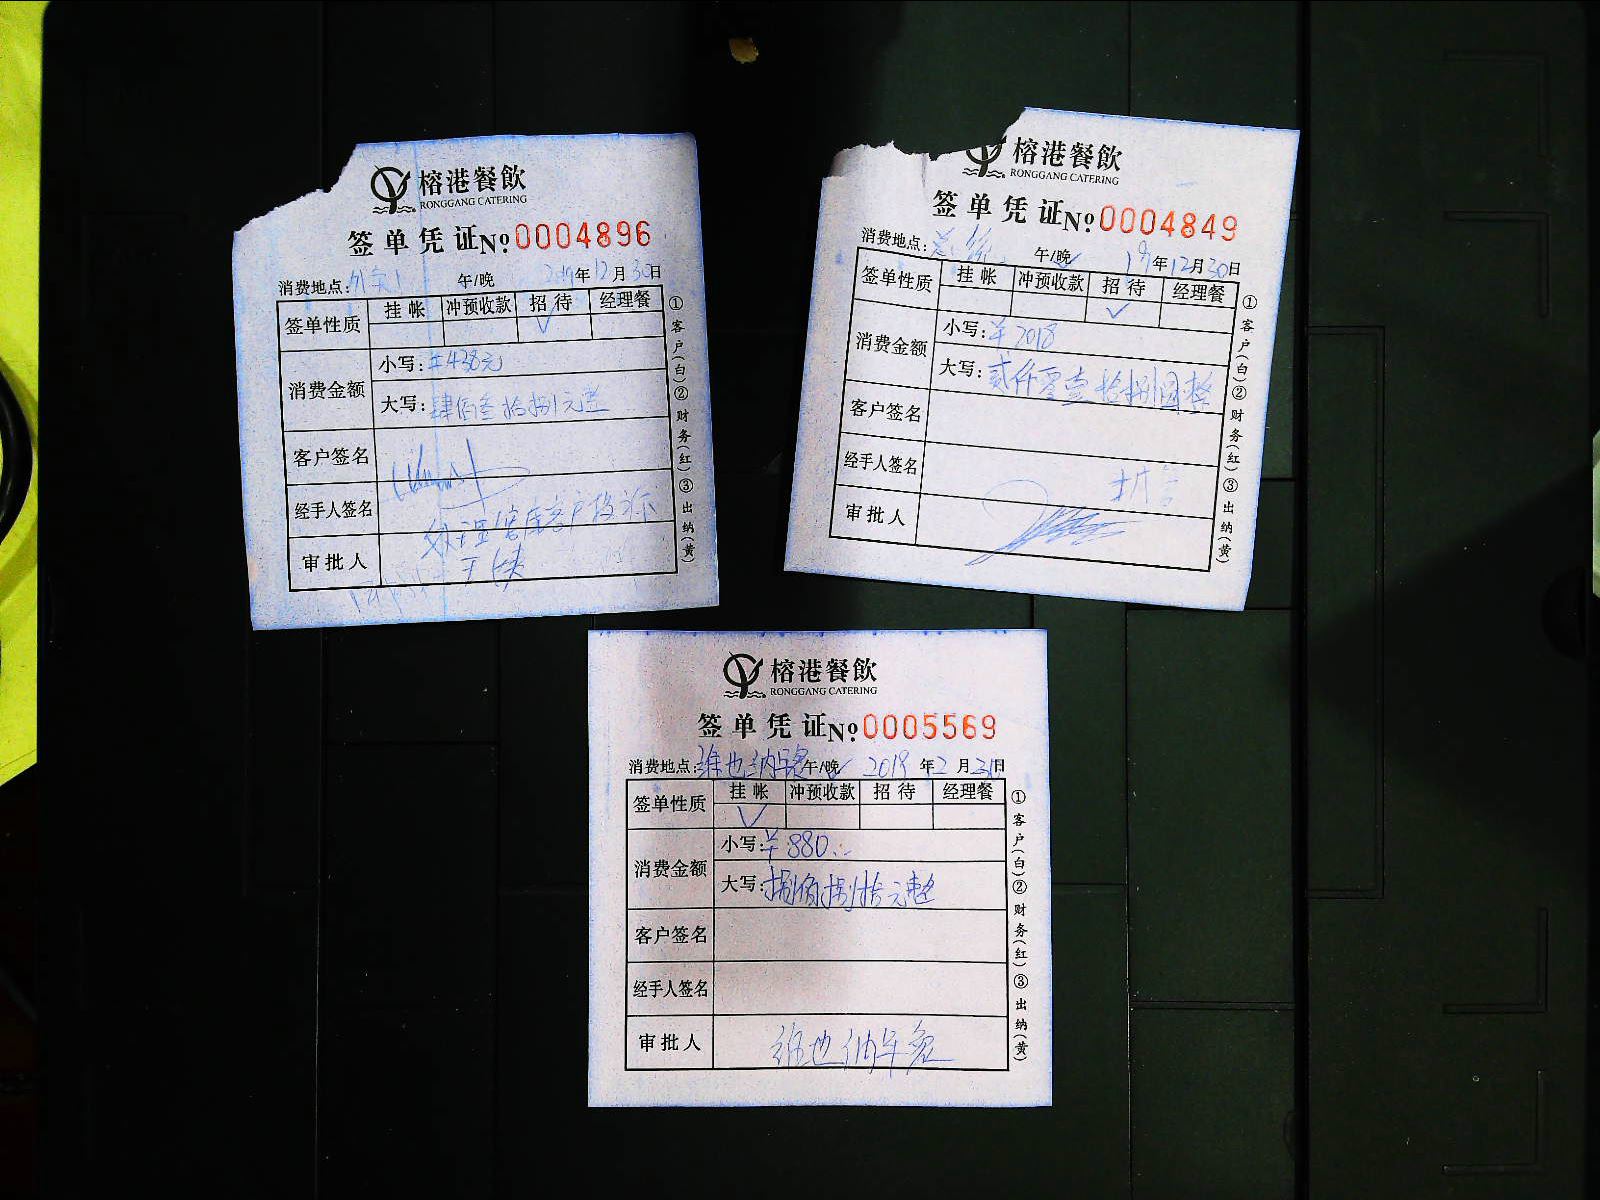 榕港餐飲
RONGGANG CATERING
签单凭证№0004896
消费地点: 午/晚 2019年12月30日
签单性质 挂帐 冲预收款 招待 经理餐
✓
消费金额 小写:￥438元
大写:肆佰叁拾捌元整
客户签名
经手人签名
审批人
①客户(白)②财务(红)③出纳(黄)
榕港餐飲
RONGGANG CATERING
签单凭证№0004849
消费地点: 午/晚 19年12月30日
签单性质 挂帐 冲预收款 招待 经理餐
✓
消费金额 小写:￥2018
大写:贰仟零壹拾捌圆整
客户签名
经手人签名
审批人
①客户(白)②财务(红)③出纳(黄)
榕港餐飲
RONGGANG CATERING
签单凭证№0005569
消费地点:维也纳 午/晚 2019年12月31日
签单性质 挂帐 冲预收款 招待 经理餐
✓
消费金额 小写:￥880
大写:捌佰捌拾元整
客户签名
经手人签名
审批人 维也纳年宴
①客户(白)②财务(红)③出纳(黄)